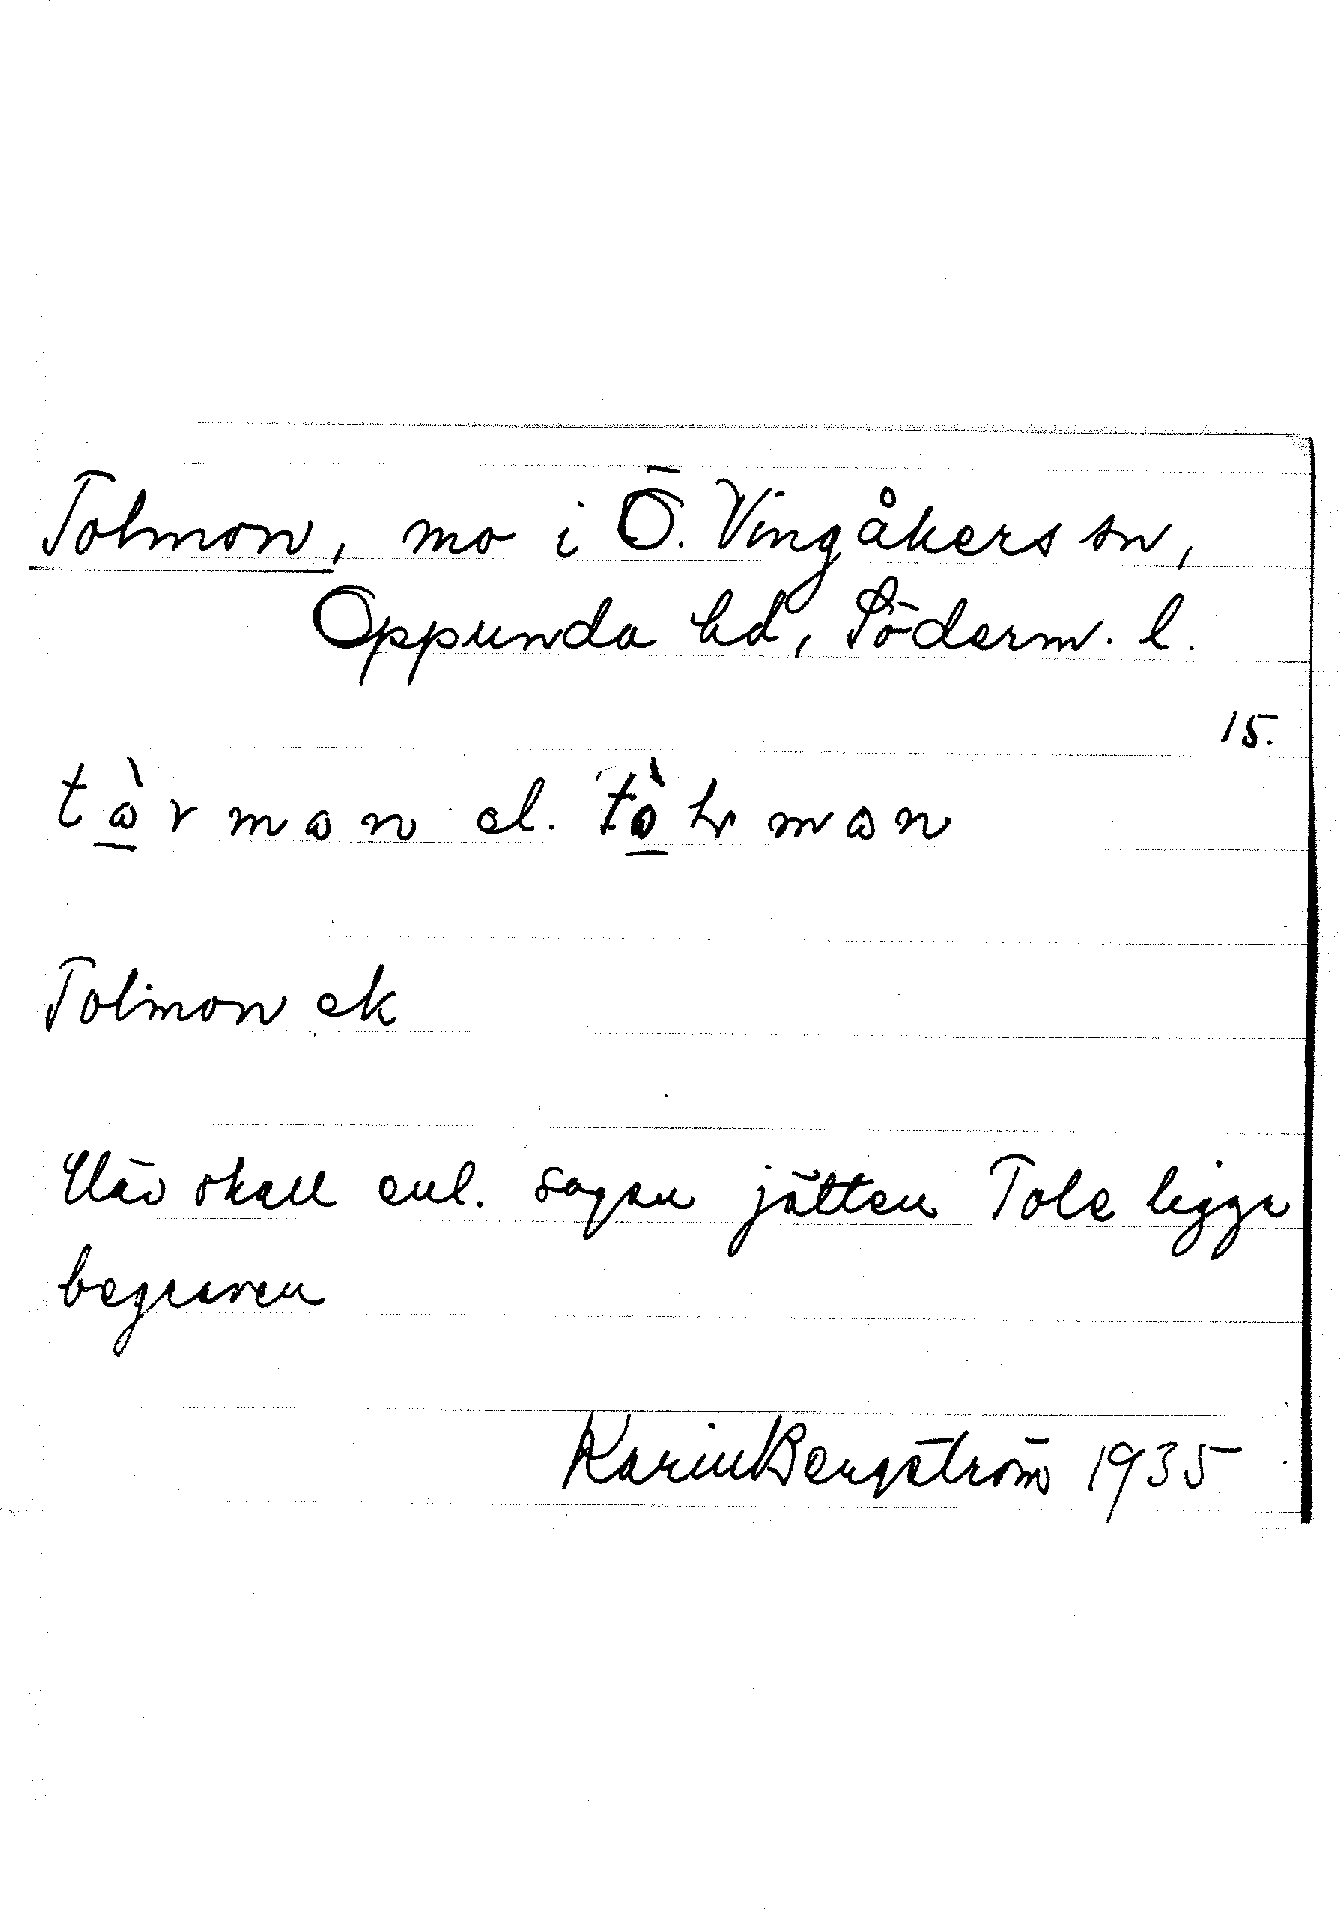 Tolmon, mo i Ö. Vingåkers sn,
Oppunda hd, Söderm. l.
15.
el.
Tolmon ek
Här skall enl. sagan jätten Tole ligga
begraven
Karin Bergström 1935